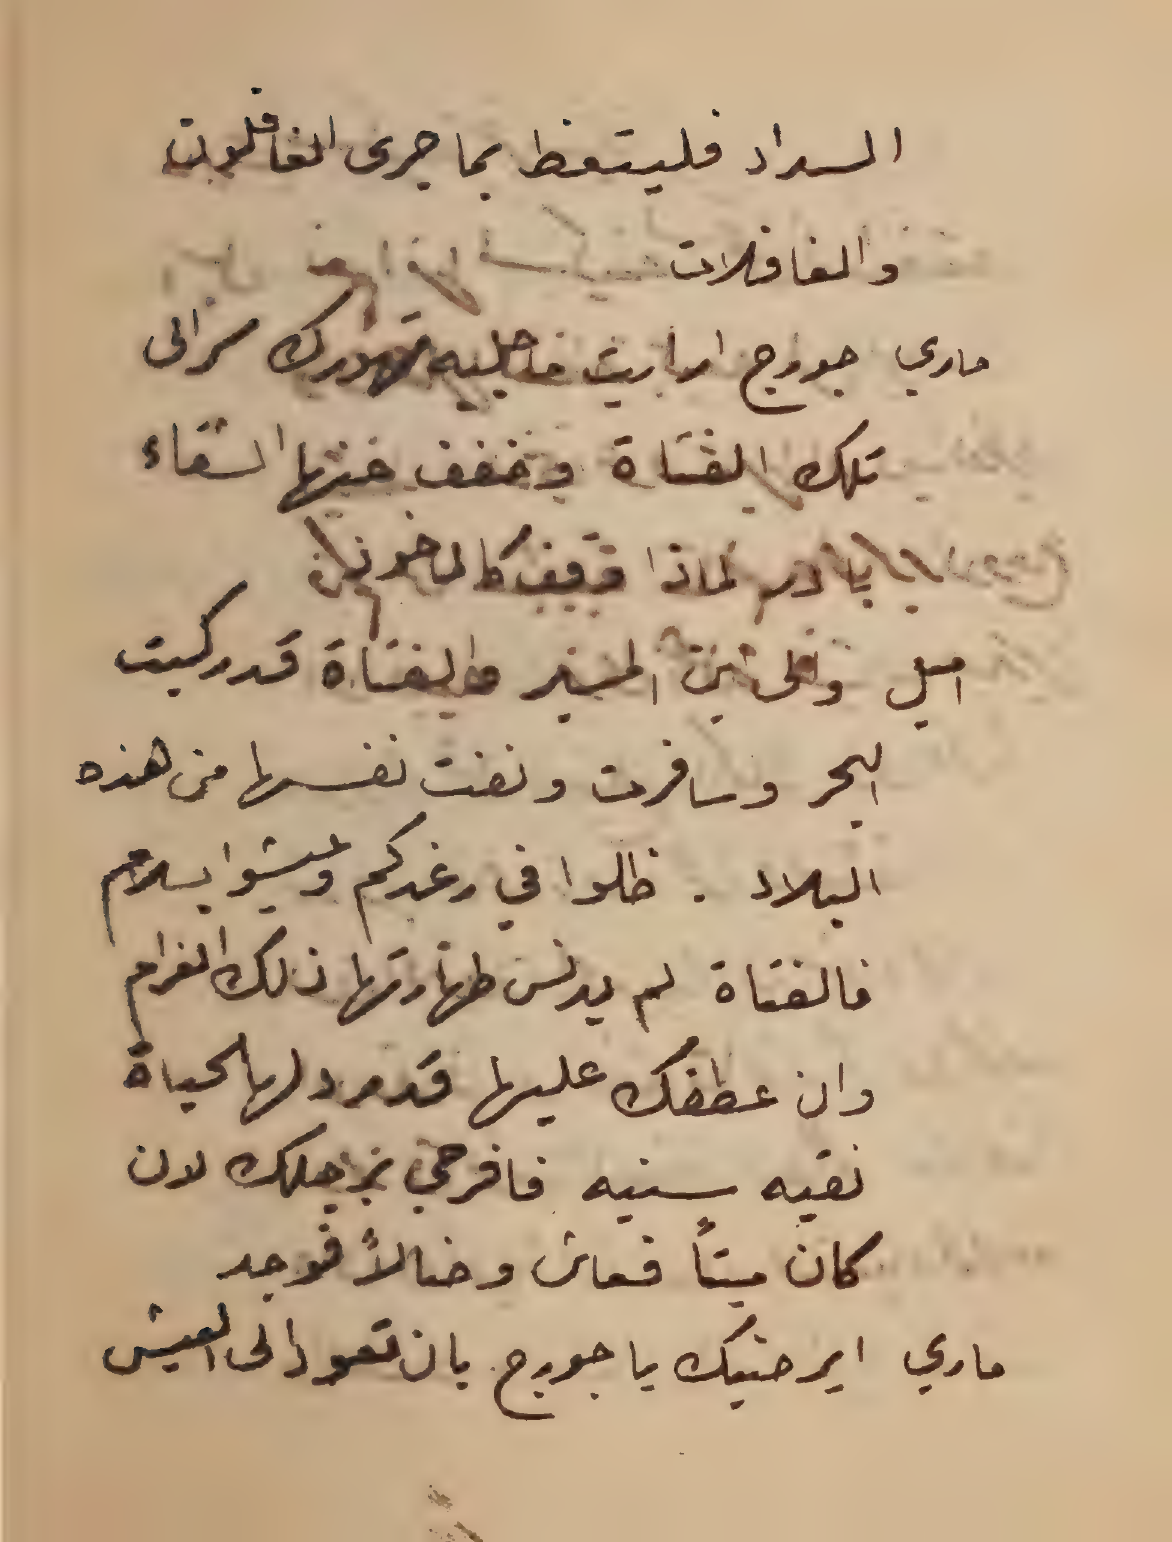 السداد فليتعظ بما جرى الغافلون
والغافلات
ماري جورج ارايت فاجليه
تلك الفتاة وخفف عنها الشقاء
لماذا تقف كالماخوذ
اميل المنير والفتاة قد ركبت
البحر وسافرت ونفت نفسها من هذه
البلاد . ظلوا في رغدكم وعيشوا بسلام
فالفتاة لم يدنس طهارتها ذلك الغرام
وان عطفك عليها قد مرد لها الحياة
نقيه سنيه فافرحي برجلك لان
كان ميتاً فعاش وضالاً فوجد
ماري ايرضيك يا جورج بان تعود الى العيش